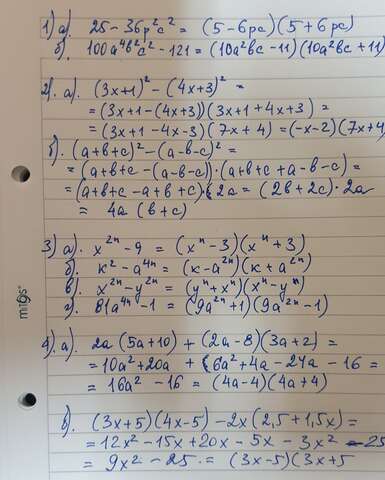 1) а). 25 - 36p²c² = (5 - 6pc)(5 + 6pc)
б). 100a⁴b²c² - 121 = (10a²bc - 11)(10a²bc + 11)
2). а). (3x+1)² - (4x+3)² =
= (3x+1 - (4x+3))(3x+1 + 4x+3) =
= (3x+1 - 4x - 3)(7x + 4) = (-x-2)(7x+4
б). (a+b+c)² - (a-b-c)² =
= (a+b+c - (a-b-c)) · (a+b+c + a-b-c) =
= (a+b+c - a+b+c) · 2a = (2b + 2c) · 2a
= 4a (b+c)
3) а). x²ⁿ - 9 = (xⁿ - 3)(xⁿ + 3)
б). k² - a⁴ⁿ = (k - a²ⁿ)(k + a²ⁿ)
в). x²ⁿ - y²ⁿ = (yⁿ + xⁿ)(xⁿ - yⁿ)
г). 81a⁴ⁿ - 1 = (9a²ⁿ + 1)(9a²ⁿ - 1)
migos
4). а). 2a (5a + 10) + (2a - 8)(3a + 2) =
= 10a² + 20a + (6a² + 4a - 24a - 16 =
= 16a² - 16 = (4a - 4)(4a + 4)
б). (3x+5)(4x-5) - 2x (2,5 + 1,5x) =
= 12x² - 15x + 20x - 5x - 3x² - 25
= 9x² - 25 = (3x-5)(3x+5